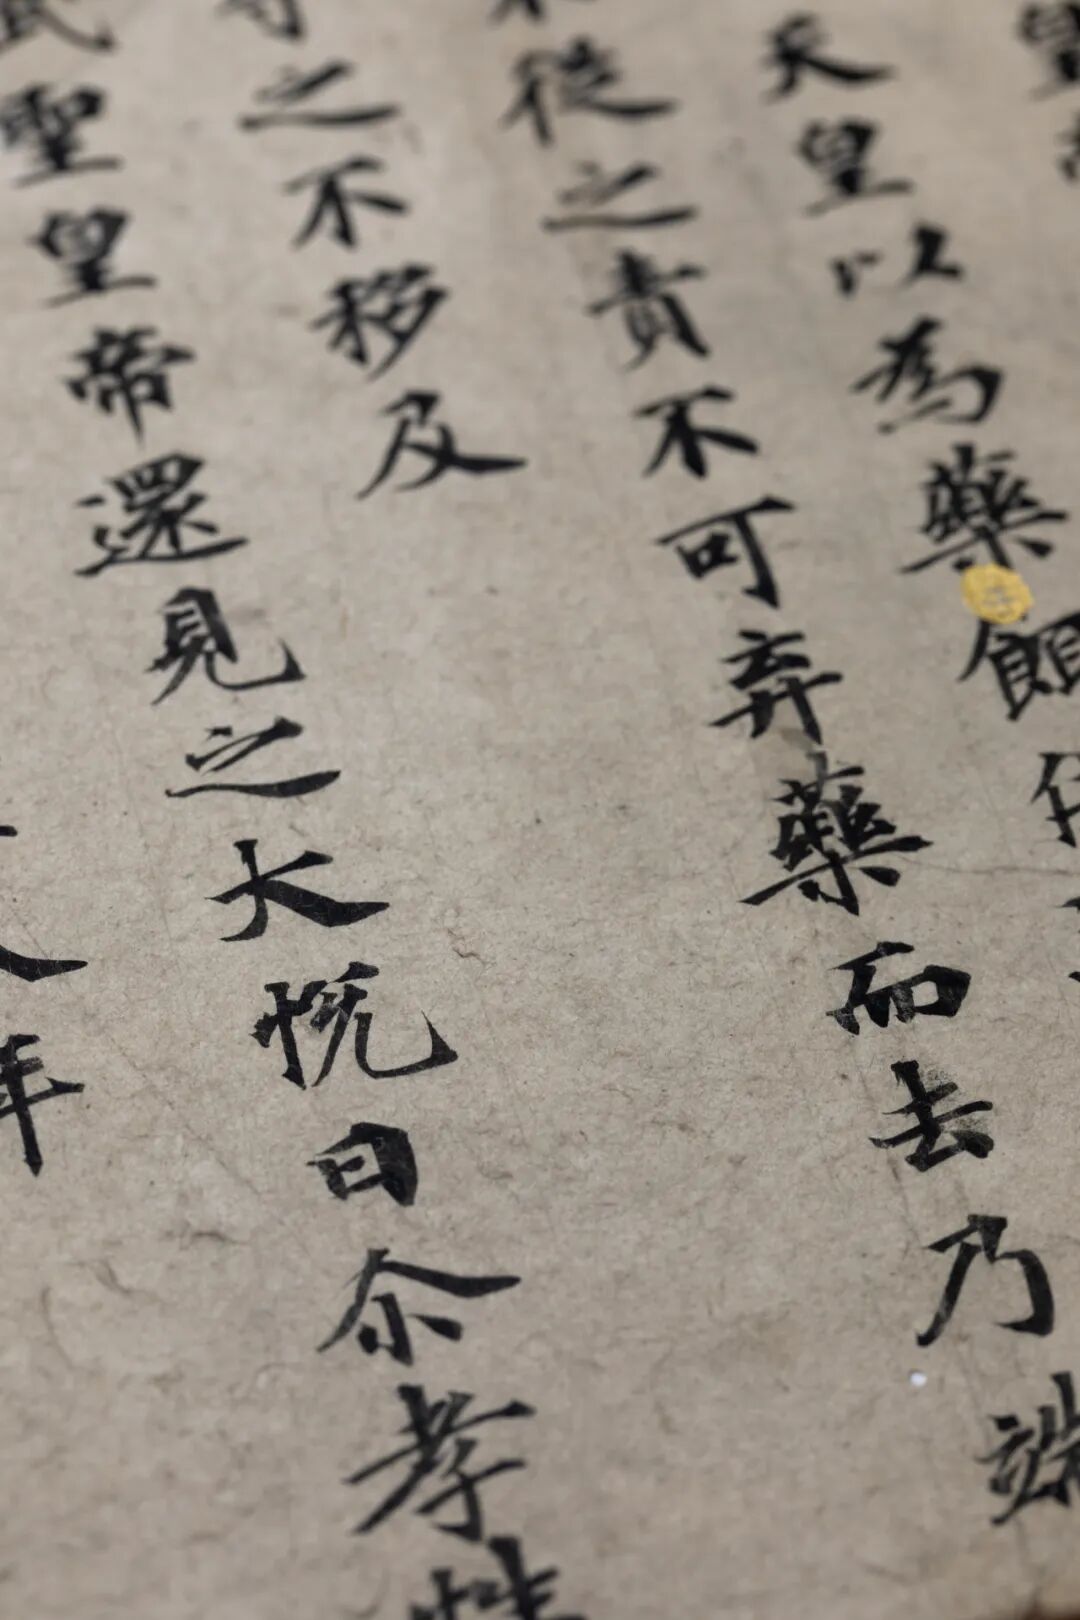 皇
天皇以為藥
徒之責不可弃藥而去乃端
之不移及
武聖皇帝還見之大悦曰尒孝性
年